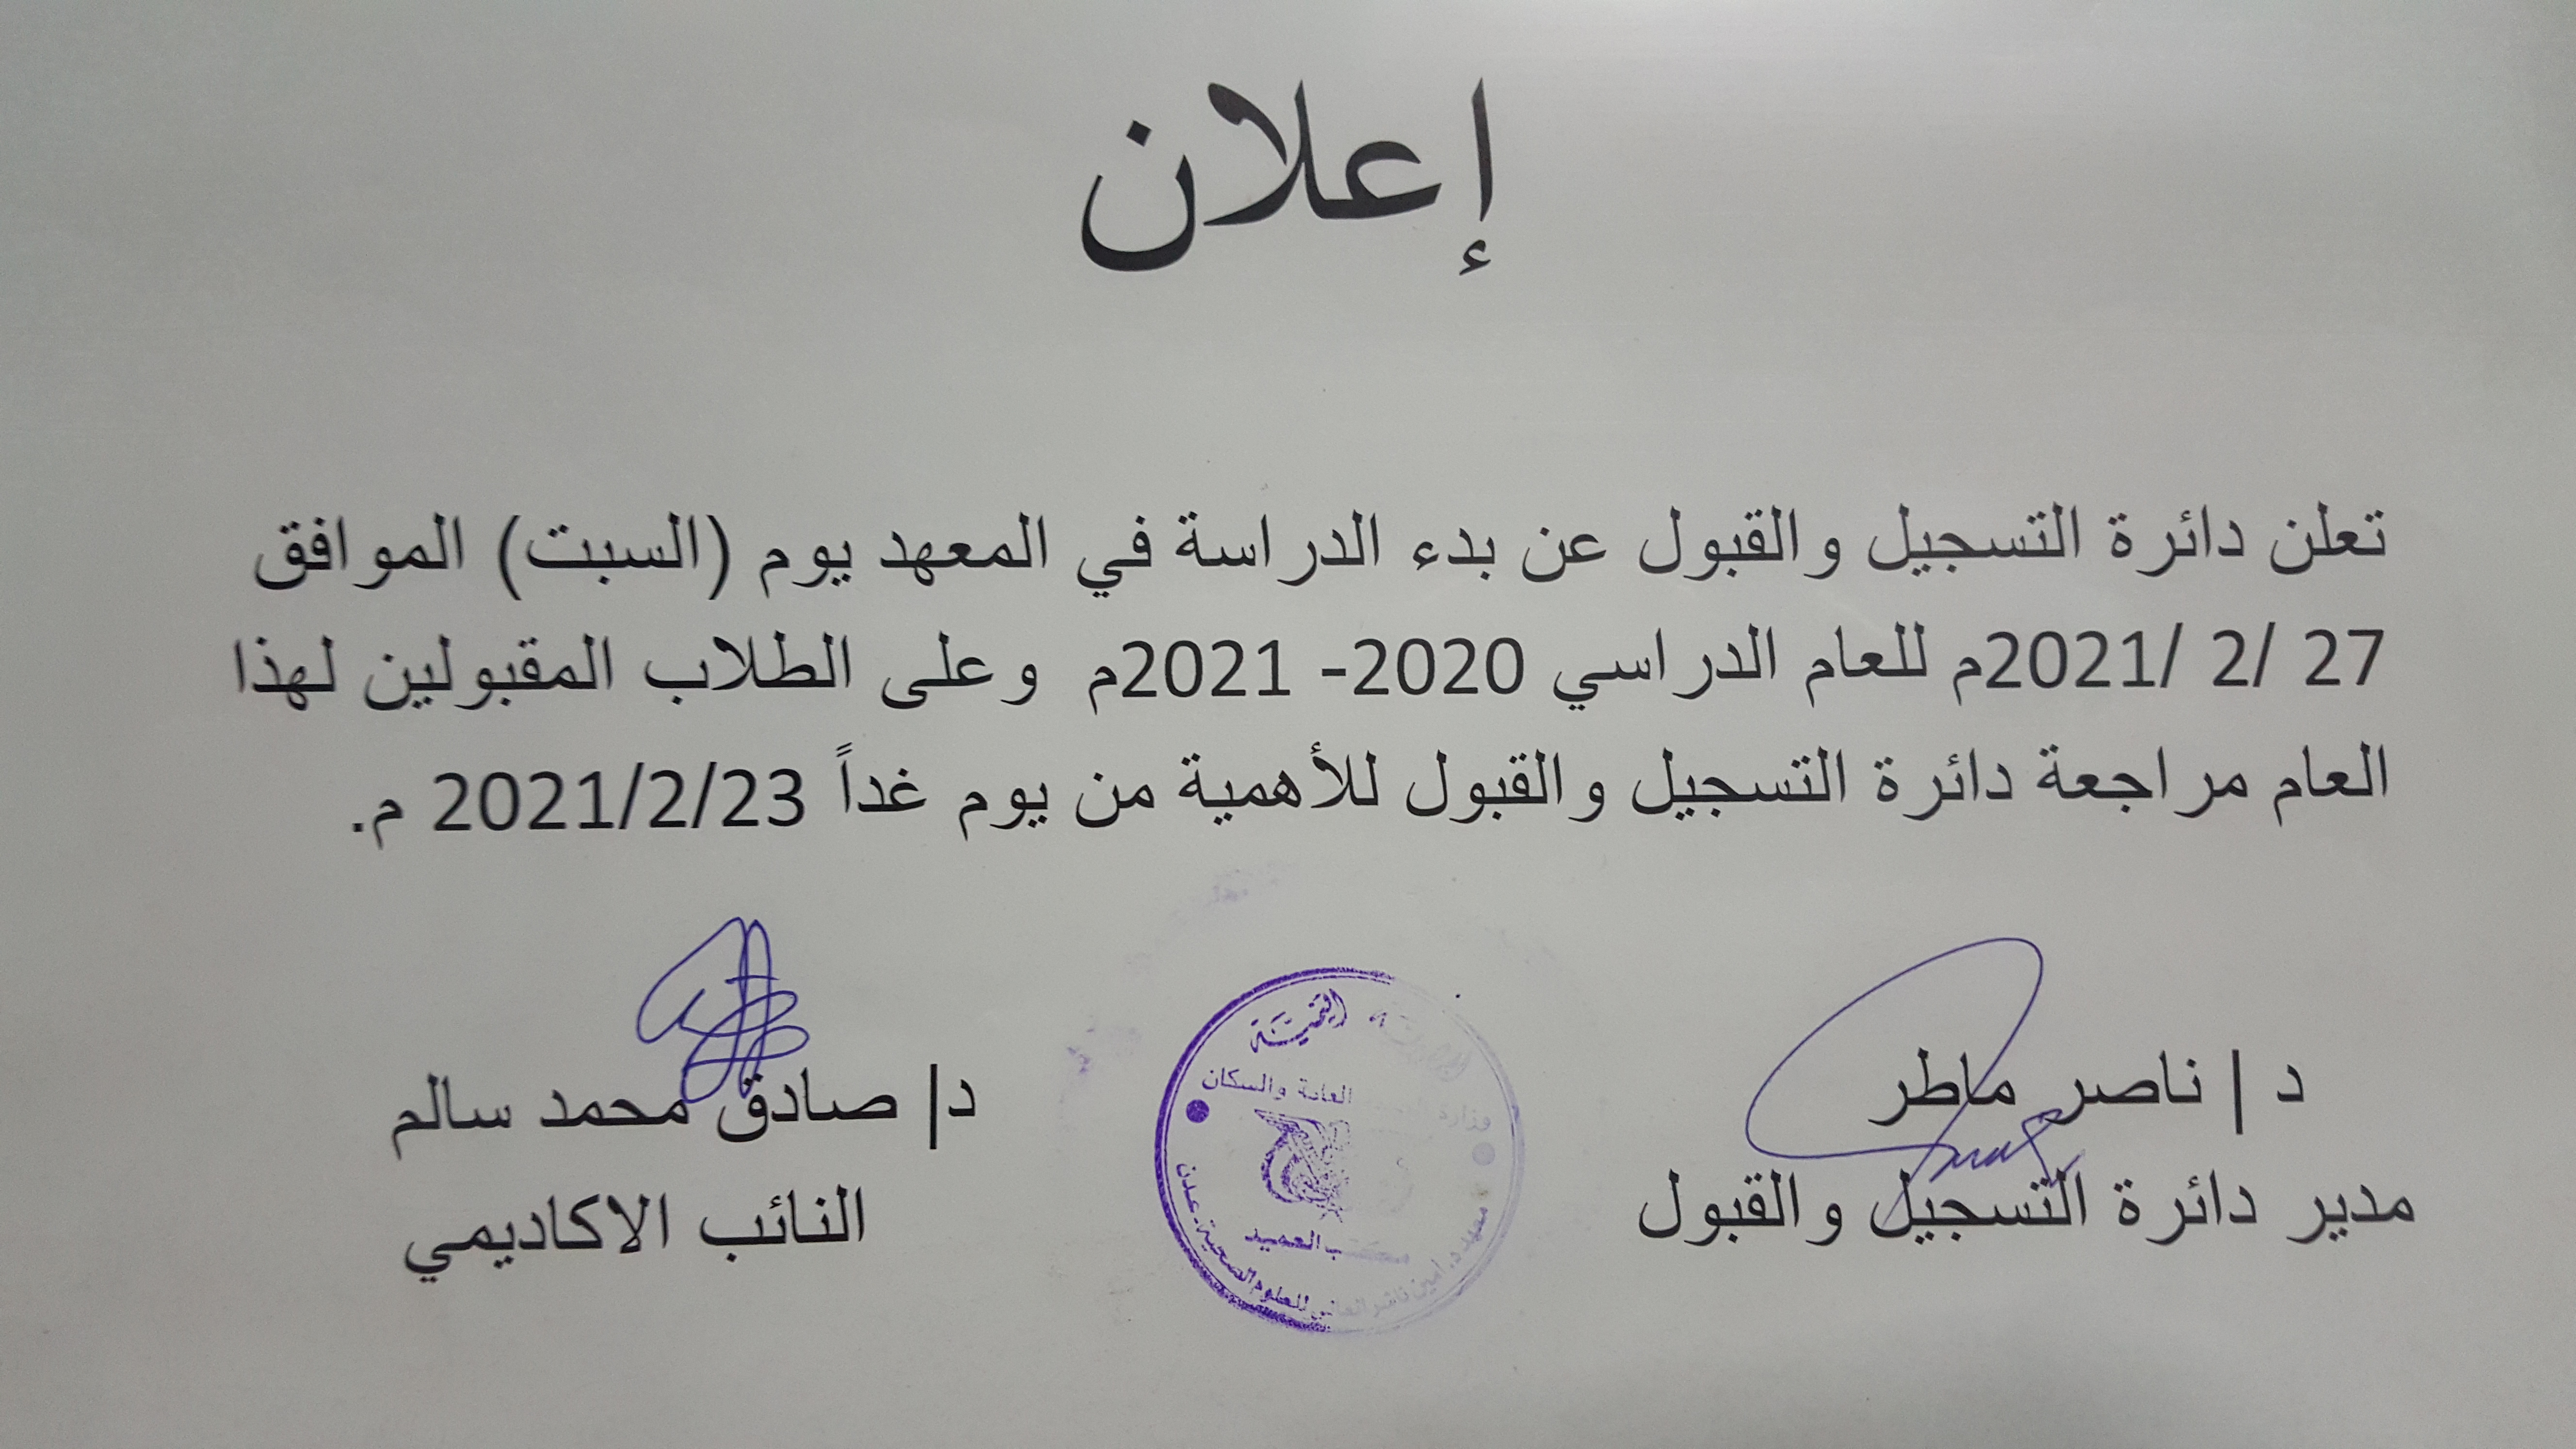 إعلان
تعلن دائرة التسجيل والقبول عن بدء الدراسة في المعهد يوم (السبت) الموافق
27 /2 /2021م للعام الدراسي 2020- 2021م وعلى الطلاب المقبولين لهذا
العام مراجعة دائرة التسجيل والقبول للأهمية من يوم غداً 2021/2/23 م.
د | ناصر ماطر
د| صادق محمد سالم
مدير دائرة التسجيل والقبول
النائب الاكاديمي
اليمنية
وزارة العامة والسكان
مكتب العميد
معهد د. امين ناشر العالي للعلوم الصحية. عدن